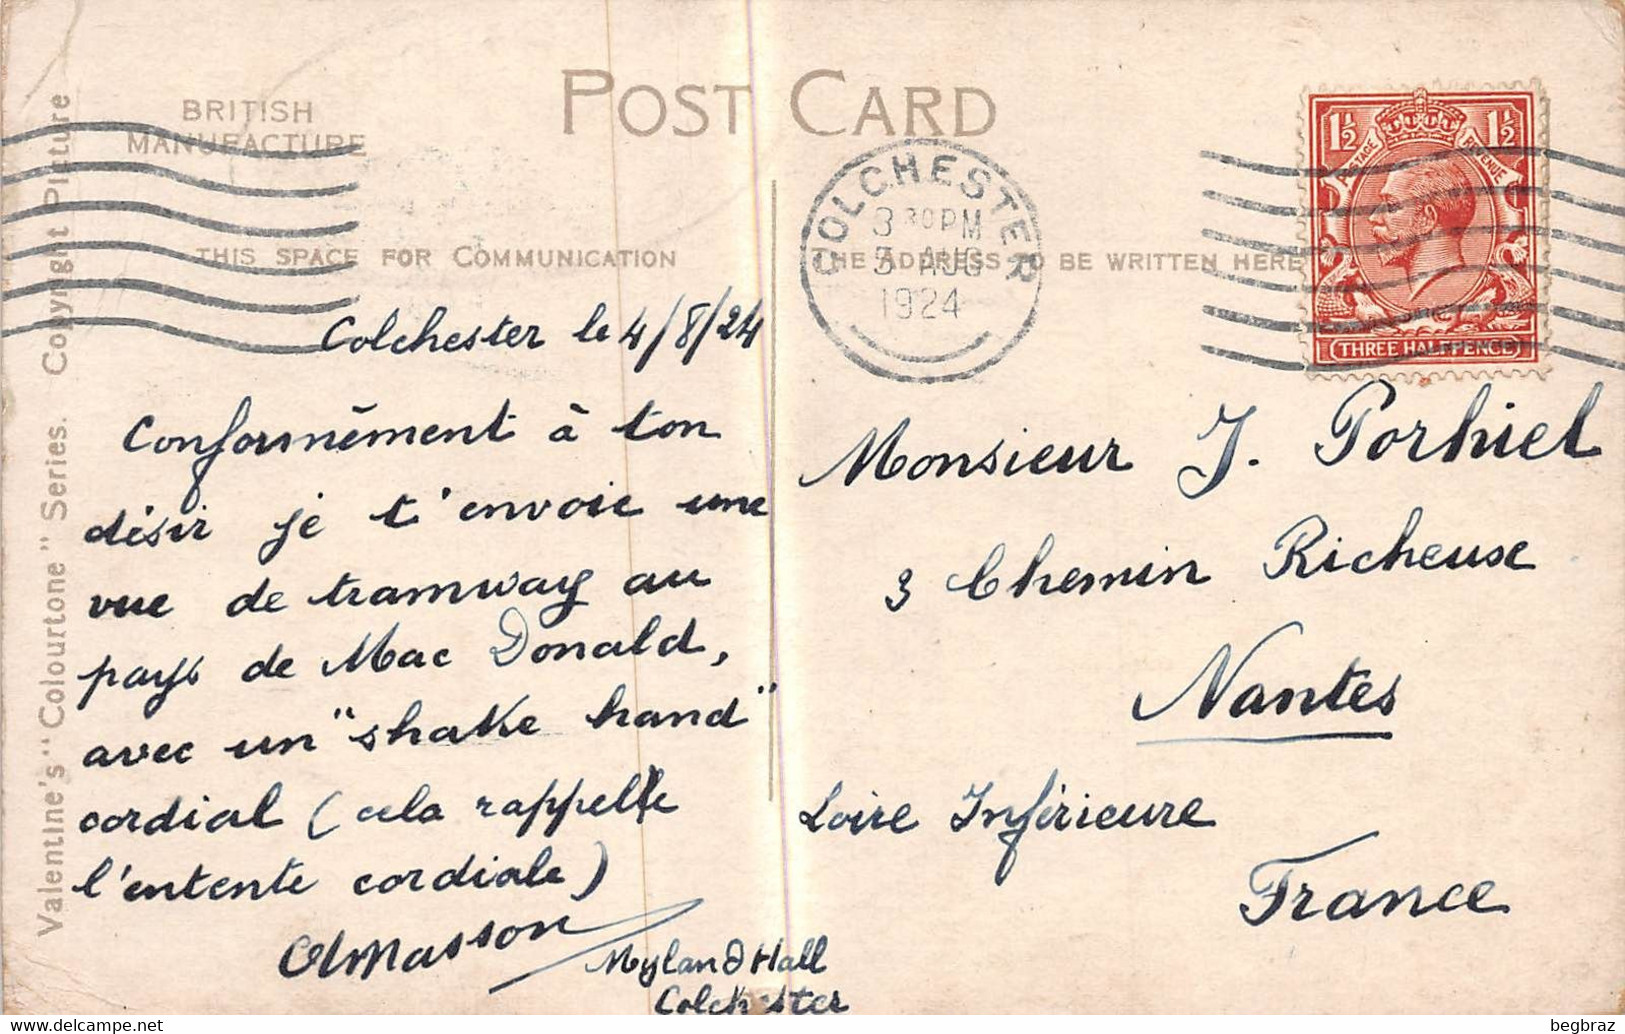 POST CARD
BRITISH
MANUFACTURE
THIS SPACE FOR COMMUNICATION
THE ADDRESS TO BE WRITTEN HERE
Valentine's "Colourtone" Series. Copyright Picture
COLCHESTER
3 30 PM
AUG
1924
1½ 1½
POSTAGE REVENUE
THREE HALFPENCE
Colchester le 4/8/24
Conformément à ton
désir je t'envoie une
vue de tramway au
pays de Mac Donald,
avec un "shake hand"
cordial (cela rappelle
l'entente cordiale)
Masson
Myland Hall
Colchester
Monsieur J. Porhiel
3 Chemin Richeuse
Nantes
Loire Inférieure
France
begbraz